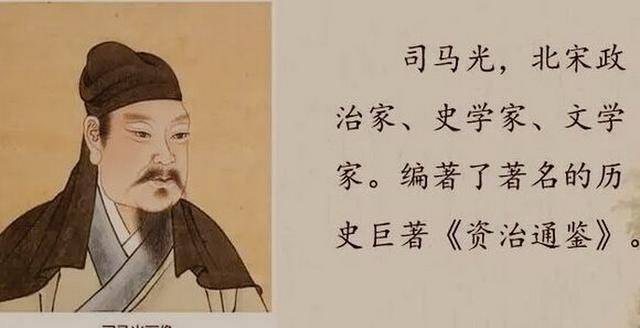 司马光，北宋政
治家、史学家、文学
家。编著了著名的历
史巨著《资治通鉴》。